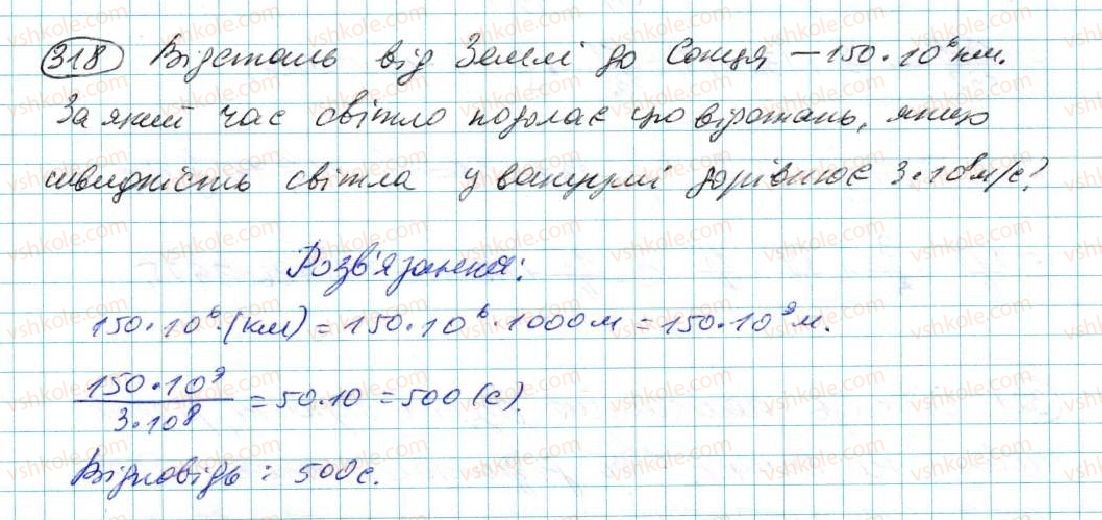 318 Відстань від Землі до Сонця — 150·10⁶ км.
За який час світло подолає цю відстань, якщо
швидкість світла у вакуумі дорівнює 3·10⁸ м/с?
Розв'язання:
150·10⁶·(км) = 150·10⁶·1000 м = 150·10⁹ м.
150·10⁹
3·10⁸ = 50·10 = 500 (с).
Відповідь: 500 с.